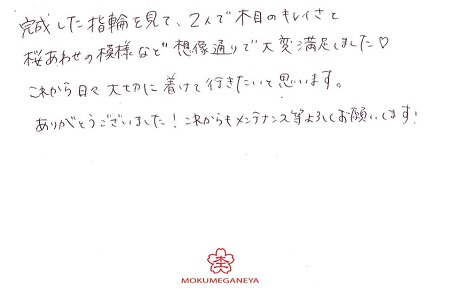 完成した指輪を見て、2人で木目のキレイさと
桜あわせの模様など想像通りで大変満足しました♡
これから日々大切に着けて行きたいと思います。
ありがとうございました！これからもメンテナンス等よろしくお願いします！
MOKUMEGANEYA